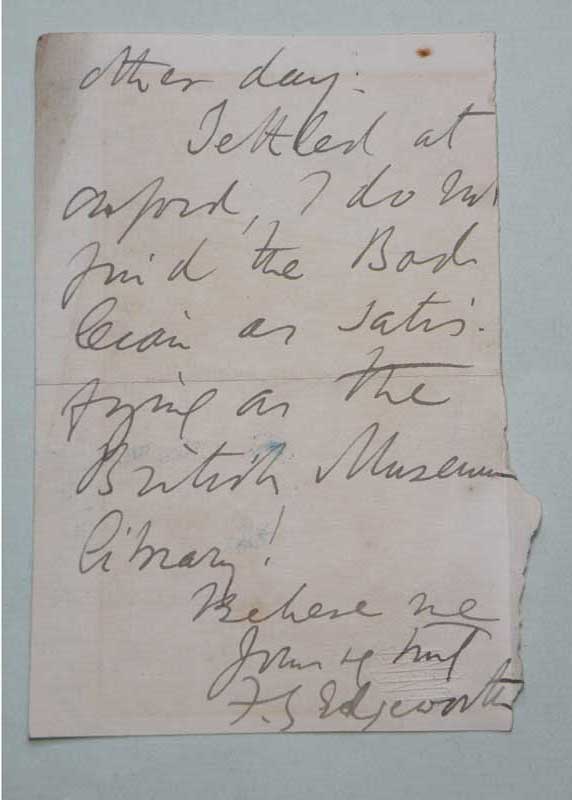 other day.
Settled at
Oxford, I do not
find the Bod
leian as satis-
fying as the
British Museum
library!
Believe me
Yours truly
F. Y. Edgeworth